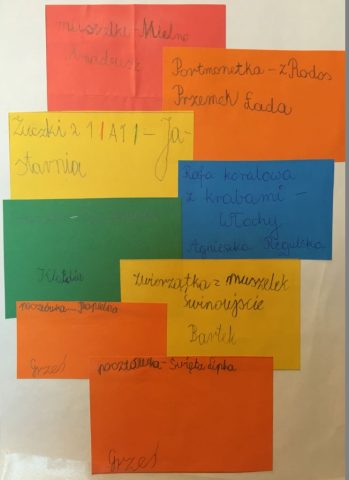 muszelki - Mielno
Andrzej
Portmonetka - z Rodos
Przemek Łada
z ITALII - Ja-
starnia
Rafa koralowa
z krabami -
Włochy
Agnieszka Regulska
Klaudia
zwierzątka z muszelek
Świnoujście
Bartek
pocztówka -
Grześ
pocztówka - Święta Lipka
Grześ